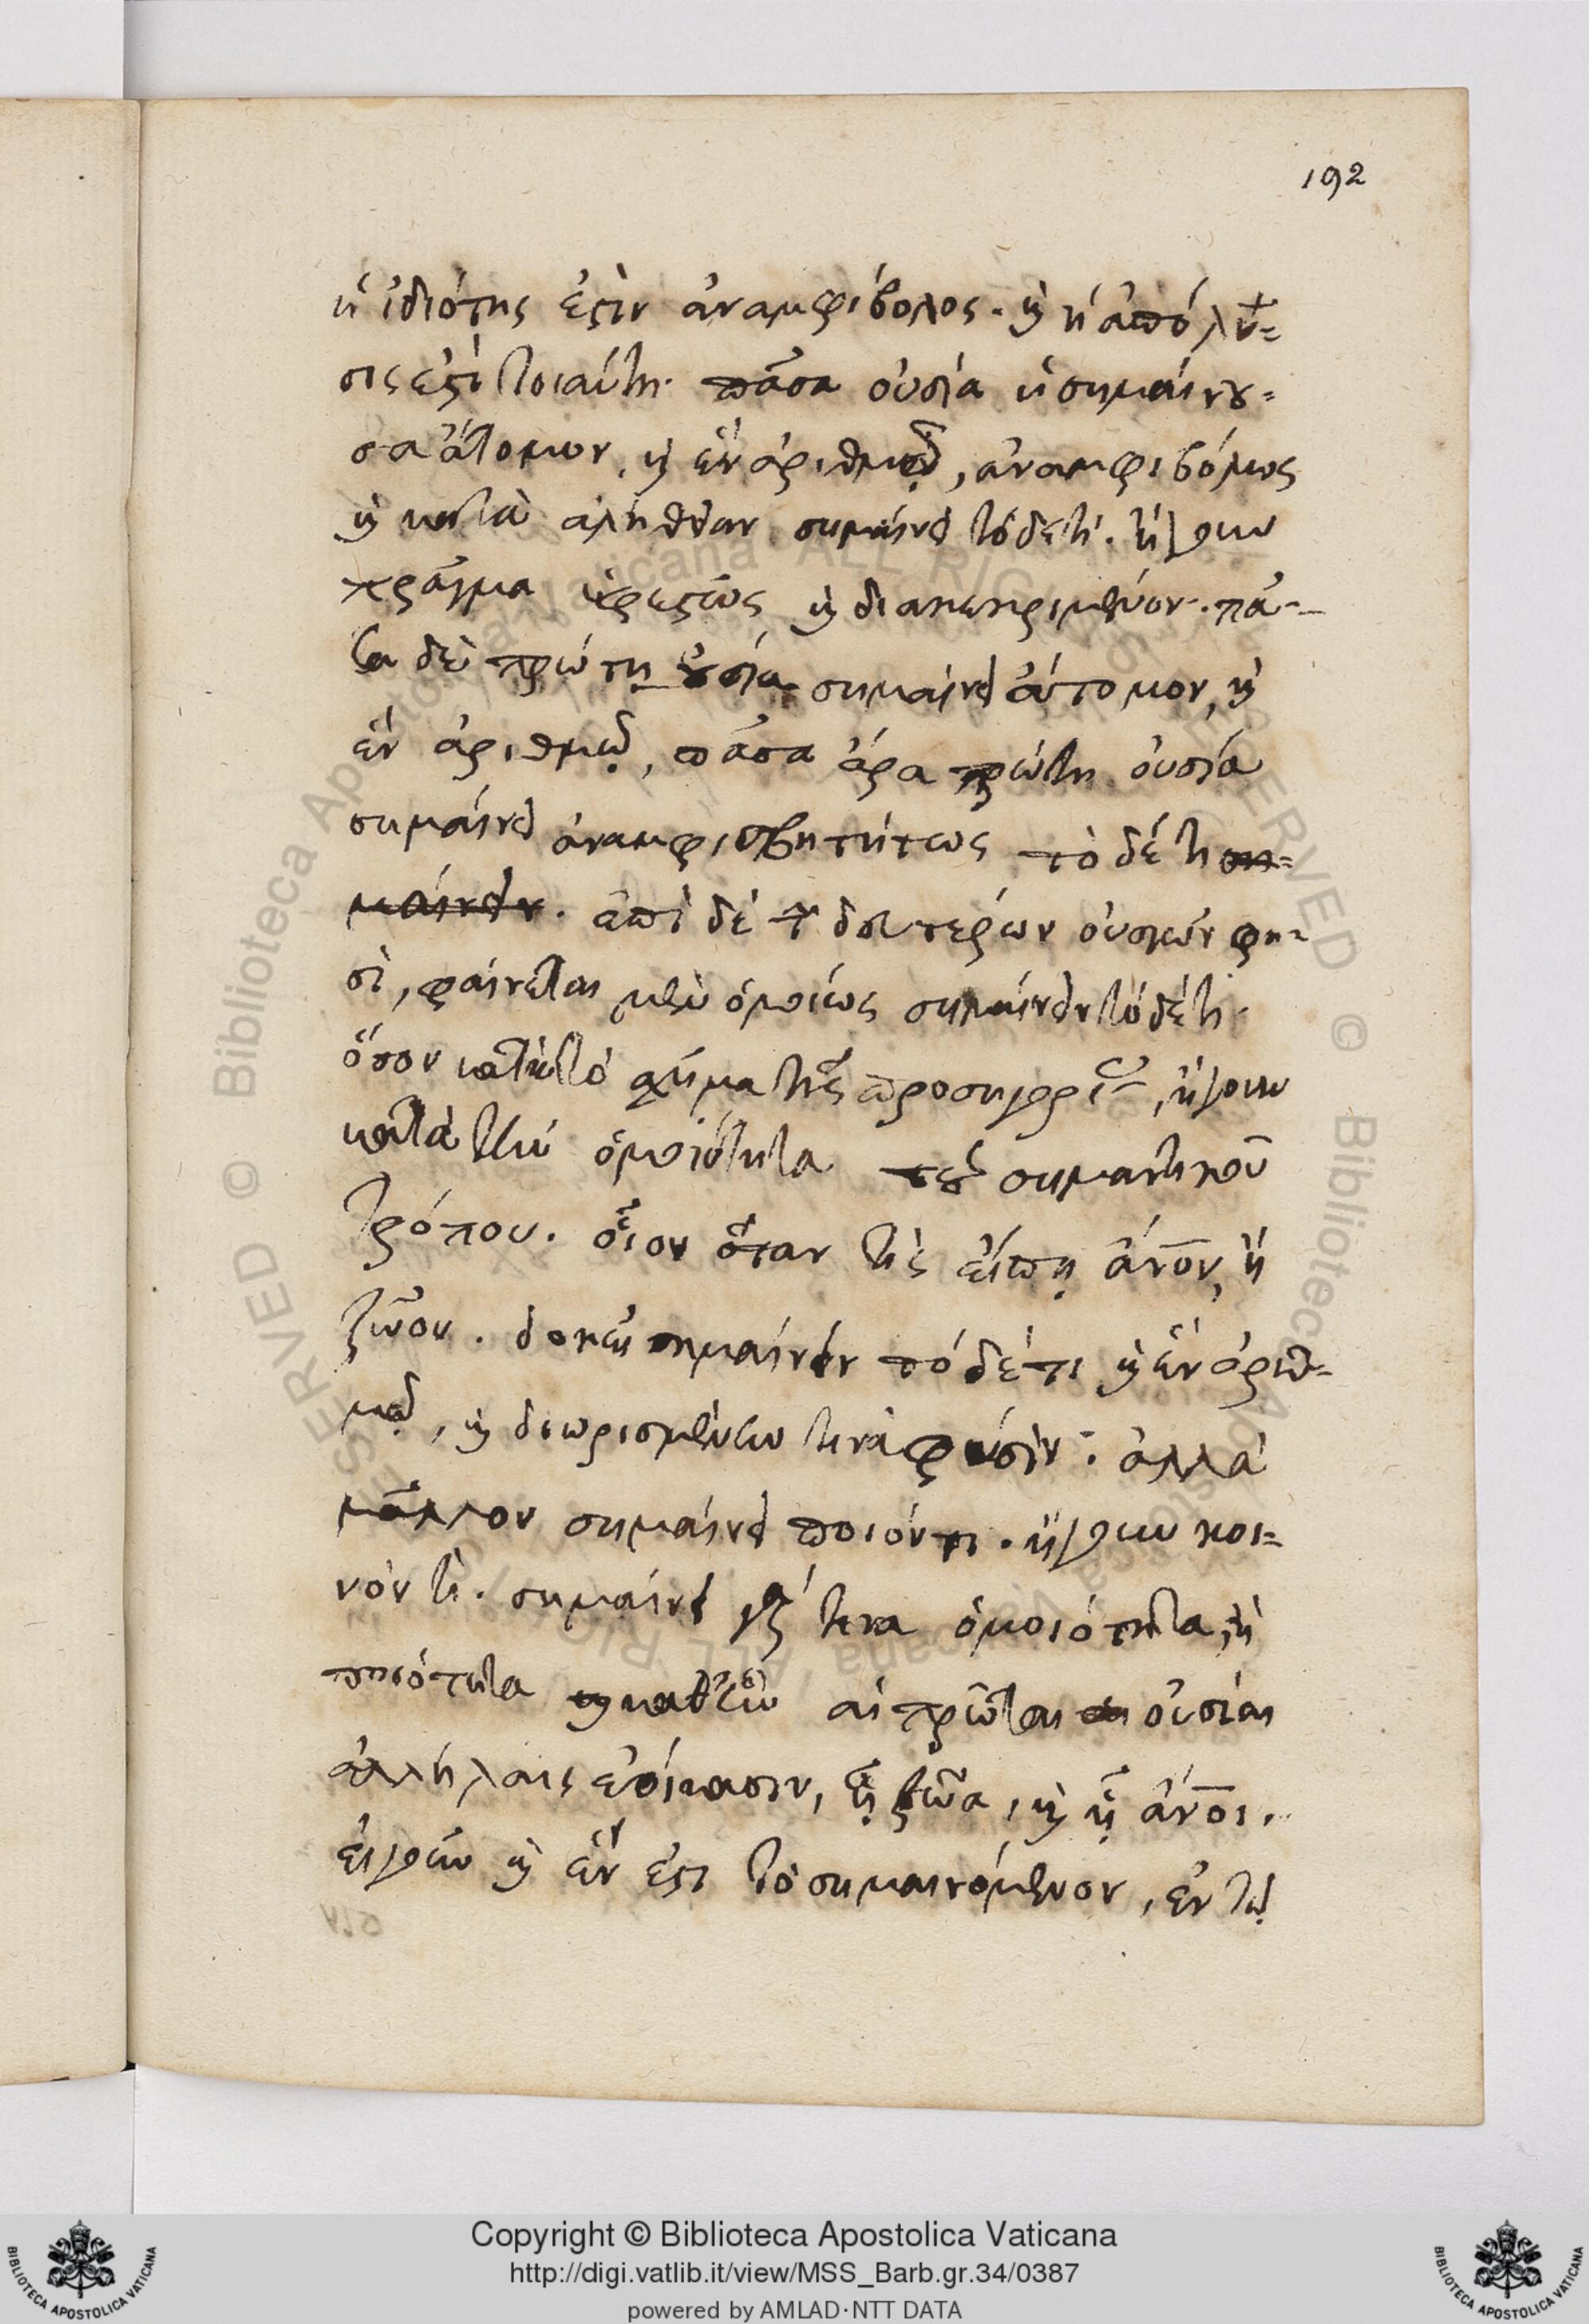 192
ἡ ἰδιότης ἐστὶν ἀναμφίβολος. καὶ ἡ ἀπόλυ=
σις ἐστὶ τοιαύτη. πᾶσα οὐσία ἡ σημαίνου=
σα ἄτομον, καὶ ἓν ἀριθμῷ, ἀναμφιβόλως
καὶ κατὰ ἀλήθειαν σημαίνει τόδε τί. ἤγουν
πρᾶγμα καὶ διακεκριμένον. πᾶ-
σα δὲ πρώτη οὐσία σημαίνει ἄτομον, καὶ
ἓν ἀριθμῷ, πᾶσα ἄρα πρώτη οὐσία
σημαίνει ἀναμφισβητήτως τὸ δέ τι ση=
μαίνειν. ἐπὶ δὲ τῶν δευτερέων οὐσιῶν φη=
σὶ, φαίνεται μὲν ὁμοίως σημαίνειν τόδέ τι.
ὅσον κατὰ τὸ σχῆμα τῆς προσηγορίας, ἤγουν
κατὰ τὴν ὁμοιότητα τοῦ σημαντικοῦ
τρόπου. οἷον ὅταν τὶς εἴπῃ ἄνον, ἢ
ζῶον. δοκεῖ σημαίνειν τόδέτι καὶ ἓν ἀριθ=
μῷ, καὶ διωρισμένην τινὰ φύσιν. ἀλλὰ
μᾶλλον σημαίνει ποιόν τι. ἤγουν κοι=
νόν τι. σημαίνει γὰρ τινα ὁμοιότητα, ἢ
ποιότητα καθ' ἣν αἱ πρῶται οὐσίαι
ἀλλήλαις ἐοίκασιν, ᾗ ζῶα, καὶ ᾗ ἄνοι.
εἰ γοῦν καὶ ἕν ἐστι τὸ σημαινόμενον, ἐν τῷ
Copyright © Biblioteca Apostolica Vaticana
http://digi.vatlib.it/view/MSS_Barb.gr.34/0387
powered by AMLAD·NTT DATA